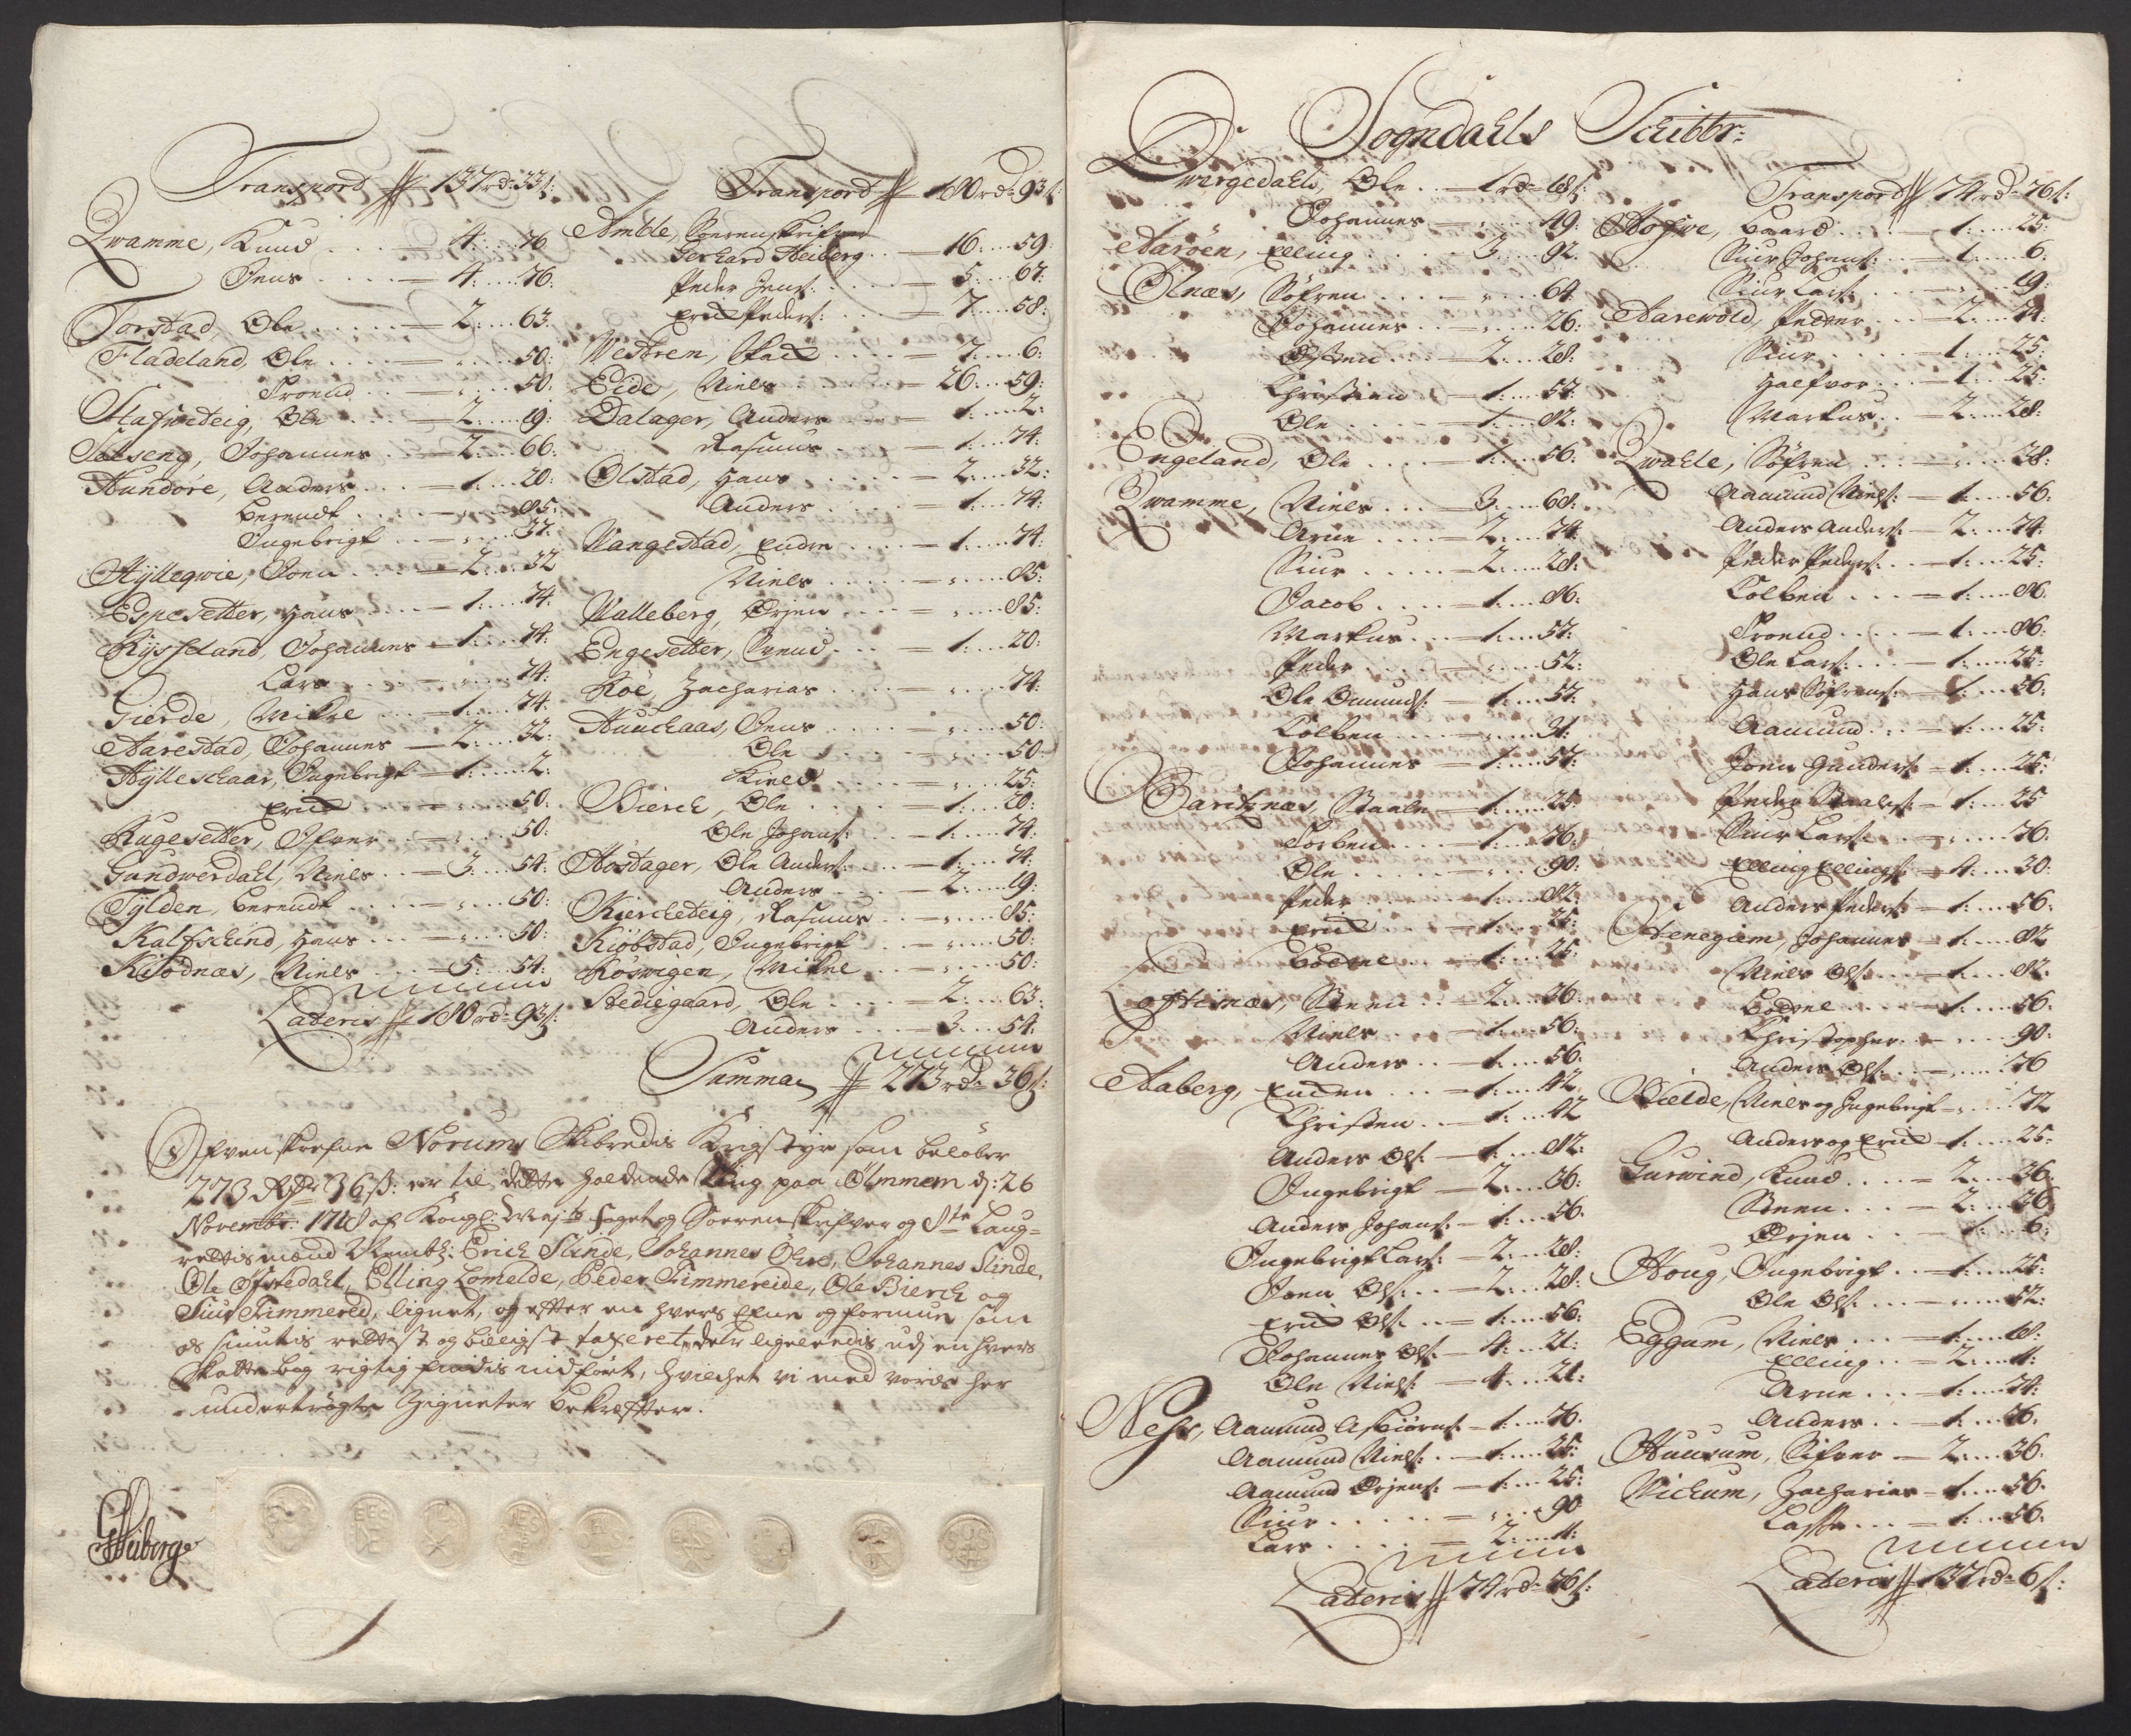 Transport # 137rd: 33ß:
Qwamme, Knud . . . — 4 . . . 76
Jens . . . — 4 . . . 76:
Torstad, Ole . . . — 2 . . . 63:
Fladeland, Ole . . . — „ . . . 50:
Troend . . . — „ . . . 50:
Ole . . . — 2 . . . 19:
Johannes . — 2 . . . 66:
Hundøre, Anders . . . — 1 . . . 20:
Berendt . . . — „ . . . 85:
Ingebrigt . . . — „ . . . 37:
Hyllegwie, Joen . . . — 2 . . . 32
Espesetter, Hans . . . — 1 . . . 74:
Kysseland, Johannes — 1 . . . 74:
Lars . . . — „ . . . 74:
Gierde, Mikel . . . — 1 . . . 74:
Aarestad, Johannes — 2 . . . 32:
Hylleschaar, Ingebrigt — 1 . . . 2:
Erich . . . — „ . . . 50:
Rugesetter, Ifver . . . — „ . . . 50:
Gundwerdahl, Niels . . — 3 . . . 54:
Tylden, Berendt . . . — „ . . . 50:
Kalfschind, Hans . . . — „ . . . 50:
Kisødnæs, Niels . . . — 5 . . . 54:
Lateris # 180rd: 93ß:
Transport # 180rd: 93ß:
Amble, Sorenskrifver
Gerhard Heiberg . . — 16 . . . 59:
Peder Jens: . . . — 5 . . . 67:
Erich Peders: . . . — 7 . . . 58:
Westren, . . . — 7 . . . 6:
Eide, Niels . . . — 26 . . . 59:
Dalager, Anders . . . — 1 . . . 2:
Rasmus . . . — 1 . . . 74:
Olstad, Hans . . . — 2 . . . 32:
Anders . . . — 1 . . . 74:
Wangestad, Endre . . . — 1 . . . 74:
Niels . . . — „ . . . 85:
Walleberg, Ørjen . . . — „ . . . 85:
Engesetter, Svend . . . — 1 . . . 20:
Røe, Zacharias . . . — „ . . . 74:
Huuchaas, Jens . . . — „ . . . 50:
Ole . . . — „ . . . 50
. . . — „ . . . 25:
Bierch, Ole . . . — 1 . . . 20:
Ole Johans: . . — 1 . . . 74:
Hostager, Ole Anders: . . — 1 . . . 74:
Anders . . . — 2 . . . 19:
Kiercheteig, Rasmus . . — „ . . . 85:
Kiøbstad, Ingebrigt . . — „ . . . 50:
Røswigen, Mikel . . . — „ . . . 50:
Stediegaard, Ole . . . — 2 . . . 63:
Anders . . . — 3 . . . 54:
Summa # 273rd: 36ß:
Ofvenskrefne Norums Skibredis Krigstyr som beløber
273 Rdr 36ß: er til dette holdende Ting paa Ølmmem d: 26
Novembr: 1718 af Kongl: Majts Foget og Sorenskrifver og 8te Laug-
rettismænd Nembl: Erich Slinde, Johannes Johannes Slinde,
Ole Ofstedahl, Elling Lomelde, Peder Timmereide, Ole Bierch og
Siur Timmereid, lignet, og efter en hvers Efne og formue som
os siuntis rettest og billigst taxeret, ligeledis udj en hvers
Skatte bog rigtig findis indført, hvilchet vi med voris her
undertrøgte Zigneter bekræfter.
GHeiberg
Sogndahls Schibbr:
Dwergedahls, Ole . . — 1rd: 18ß:
Johannes — „ . . . 49:
Aarøen, Elling . . . — 3 . . . 92:
Ølnæs, Søfren . . . — „ . . . 64:
Johannes . . — „ . . . 26:
Østen . . . — 2 . . . 28:
Christian — 1 . . . 57:
Ole . . . — 1 . . . 82:
Engeland, Ole . . . — 1 . . . 56:
Qwamme, Niels . . . — 3 . . . 68:
Arne . . . — 2 . . . 74:
Siur . . . — 2 . . . 28:
Jacob . . . — 1 . . . 86:
Markus . . — 1 . . . 57:
Peder . . . — „ . . . 52:
Ole Omunds: — 1 . . . 57:
Colben . . . — „ . . . 31:
Johannes — 1 . . . 57:
Baritznæs, Staale — 1 . . . 25
Torben . . . — 1 . . . 76:
Ole . . . — „ . . . 90:
Peder . . . — 1 . . . 82:
Erich . . . — 1 . . . 25:
Bodvel . . — 1 . . . 25:
Loftisnæs, Steen . . — 2 . . . 36:
Niels . . . — 1 . . . 56:
Anders . . — 1 . . . 56:
Aaberg, Enden . . . — 1 . . . 42.
Christen . . — 1 . . . 42
Anders Ols: — 1 . . . 82:
Ingebrigt — 2 . . . 36:
Anders Johans: — 1 . . . 56:
Ingebrigt Lars: — 2 . . . 28:
Joen Ols: . . — 2 . . . 28:
Erich Ols: . . — 1 . . . 56:
Johannes Ols: — 4 . . . 21:
Ole Niels: — 4 . . . 21:
Ness, Aamund Asbiørns: — 1 . . . 76:
Aamund Niels: . — 1 . . . 25:
Aamund Ørjens: — 1 . . . 25:
Siur . . . — „ . . . 90
Lars . . . — 2 . . . 11:
Lateris # 74rd: 76ß:
Transport # 74rd: 76ß:
Hofwe, Baard . . . — 1 . . . 25:
Siur Johans: . . — 1 . . . 6:
Siur Lars: . . — „ . . . 19:
Aarewold, Peder . . — 2 . . . 74:
Siur . . . — 1 . . . 25:
Halfvor . . — 1 . . . 25:
Markus . . — 2 . . . 28:
Qwahle, Søfren . . . — „ . . . 38:
Aamund Niels: — 1 . . . 56:
Anders Anders: — 2 . . . 74:
Peder Peders: . . — 1 . . . 25:
Colben . . . — 1 . . . 86.
Troend . . . — 1 . . . 86:
Ole Lars: . . . — 1 . . . 25:
Hans Søfrens: — 1 . . . 56:
Aamund . . . — 1 . . . 25:
Joen Gunders: — 1 . . . 25:
Peder Staales: — 1 . . . 25
Siur Lars: . . — „ . . . 76:
Elling Ellings: — 4 . . . 30:
Anders Peders: — 1 . . . 56.
Stenegiem, Johannes — 1 . . . 82
Niels Ols: . . — 1 . . . 82.
Bodvel . . . — 1 . . . 56:
Christopher . — „ . . . 90:
Anders Ols: . . — „ . . . 76
Bielde, Niels og Ingebrigt — „ . . . 72
Anders og Erich — 1 . . . 25:
Gurwind, Knud . . . — 2 . . . 36:
Steen . . . — 2 . . . 36
Ørjen . . . — 1 . . . 6:
Houg, Ingebrigt . . — 1 . . . 25:
Ole Ols: . . . — „ . . . 52:
Eggum, Niels . . . — 1 . . . 18:
Elling . . — 2 . . . 11:
Arne . . . — 1 . . . 74:
Anders . . — 1 . . . 56:
Huusum, Sifver — 2 . . . 36.
Wichum, Zacharias — 1 . . . 56.
Lasse . . . — 1 . . . 56.
Lateris # 137rd: 6ß: